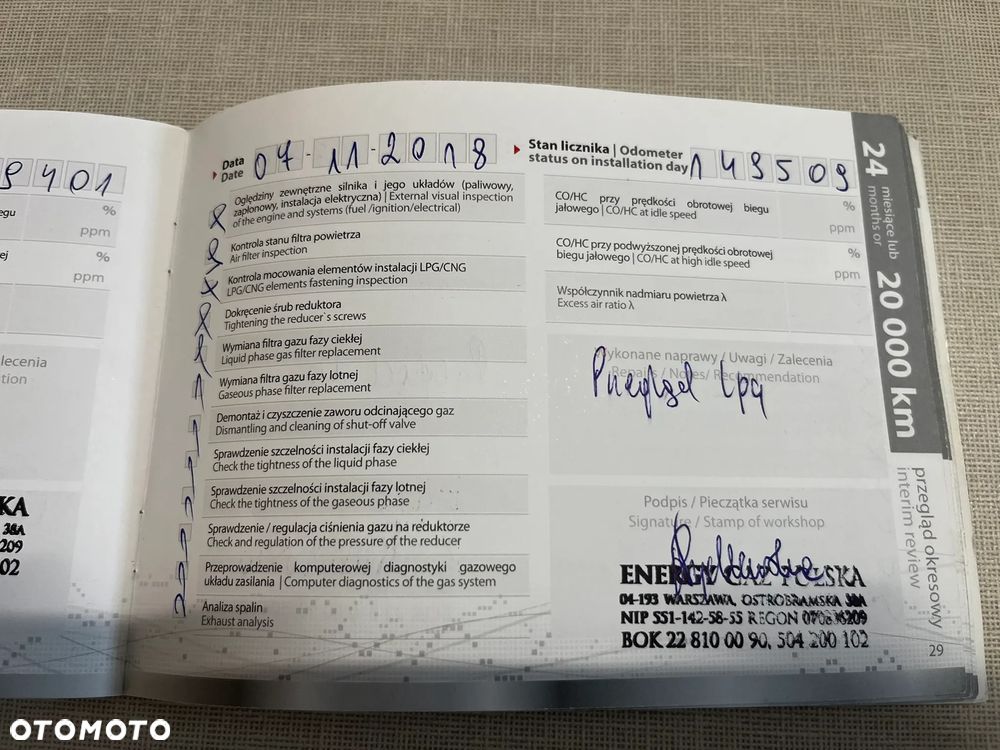 9401
egu
%
ppm
ej
%
ppm
alecenia
tion
KA
38A
209
02
Data
Date
07-11-2018
Stan licznika | Odometer
status on installation day
149509
Oględziny zewnętrzne silnika i jego układów (paliwowy,
zapłonowy, instalacja elektryczna) | External visual inspection
of the engine and systems (fuel /ignition/electrical)
Kontrola stanu filtra powietrza
Air filter inspection
Kontrola mocowania elementów instalacji LPG/CNG
LPG/CNG elements fastening inspection
Dokręcenie śrub reduktora
Tightening the reducer`s screws
Wymiana filtra gazu fazy ciekłej
Liquid phase gas filter replacement
Wymiana filtra gazu fazy lotnej
Gaseous phase filter replacement
Demontaż i czyszczenie zaworu odcinającego gaz
Dismantling and cleaning of shut-off valve
Sprawdzenie szczelności instalacji fazy ciekłej
Check the tightness of the liquid phase
Sprawdzenie szczelności instalacji fazy lotnej
Check the tightness of the gaseous phase
Sprawdzenie / regulacja ciśnienia gazu na reduktorze
Check and regulation of the pressure of the reducer
Przeprowadzenie komputerowej diagnostyki gazowego
układu zasilania | Computer diagnostics of the gas system
Analiza spalin
Exhaust analysis
CO/HC przy prędkości obrotowej biegu
jałowego | CO/HC at idle speed
%
ppm
CO/HC przy podwyższonej prędkości obrotowej
biegu jałowego | CO/HC at high idle speed
%
ppm
Współczynnik nadmiaru powietrza λ
Excess air ratio λ
Wykonane naprawy / Uwagi / Zalecenia
Repairs / Notes / Recommendation
Przegląd Lpg
Podpis / Pieczątka serwisu
Signature / Stamp of workshop
ENERGY GAZ POLSKA
04-193 WARSZAWA, OSTROBRAMSKA 38A
NIP 551-142-58-55 REGON 070836209
BOK 22 810 00 90, 504 200 102
24
miesiące lub
months or
20 000 km
przegląd okresowy
interim review
29
OTOMOTO